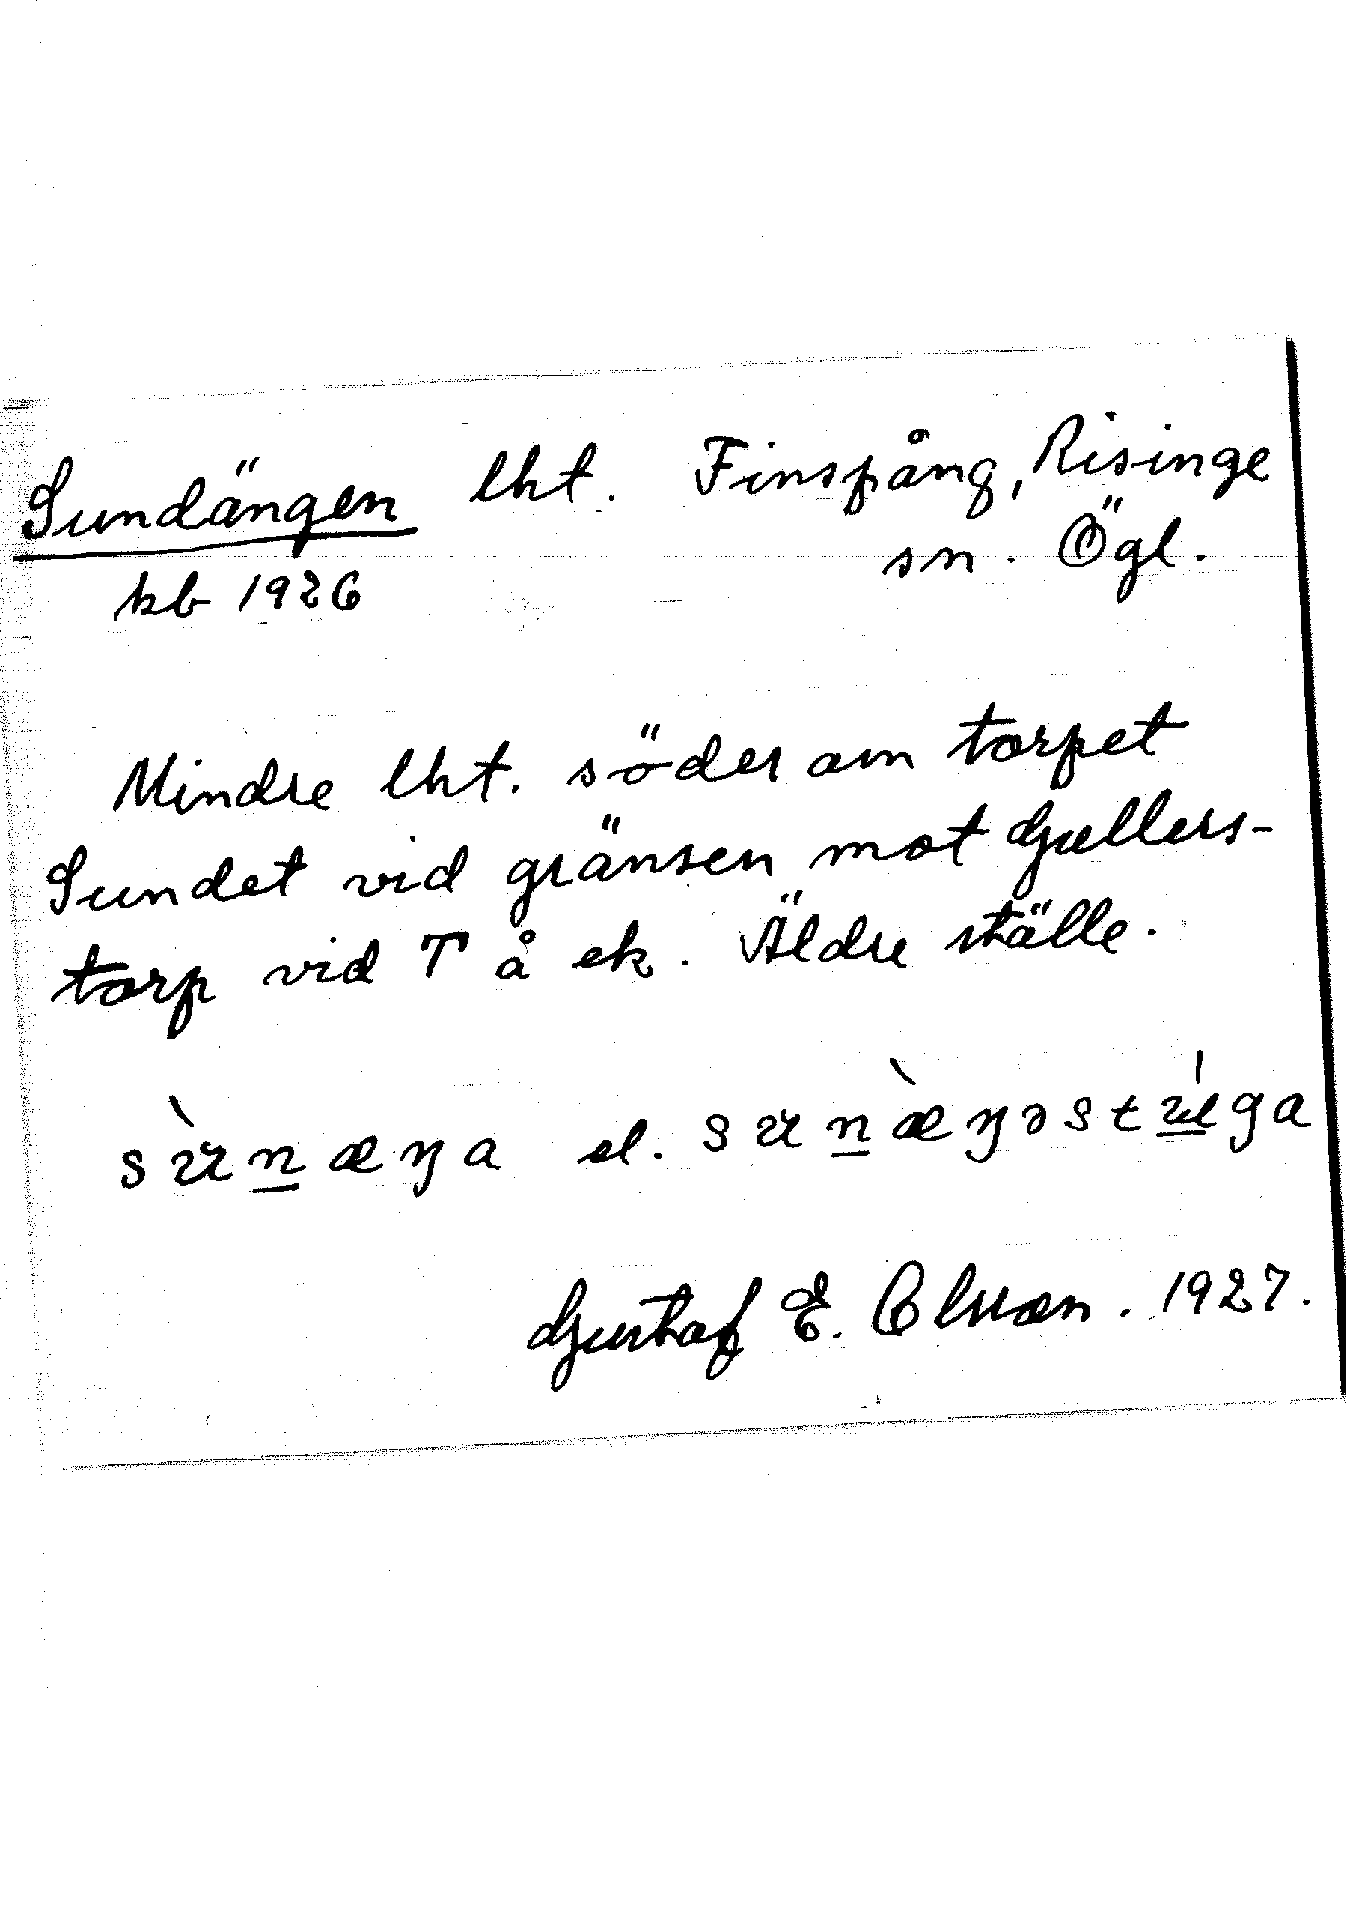 Sundängen lht. Finspång, Risinge
kb 1926 sn. Ögl.
Mindre lht. söder om torpet
Sundet vid gränsen mot Gullers-
torp vid T å ek. Äldre ställe.
el.
Gustaf E. Olsson. 1927.